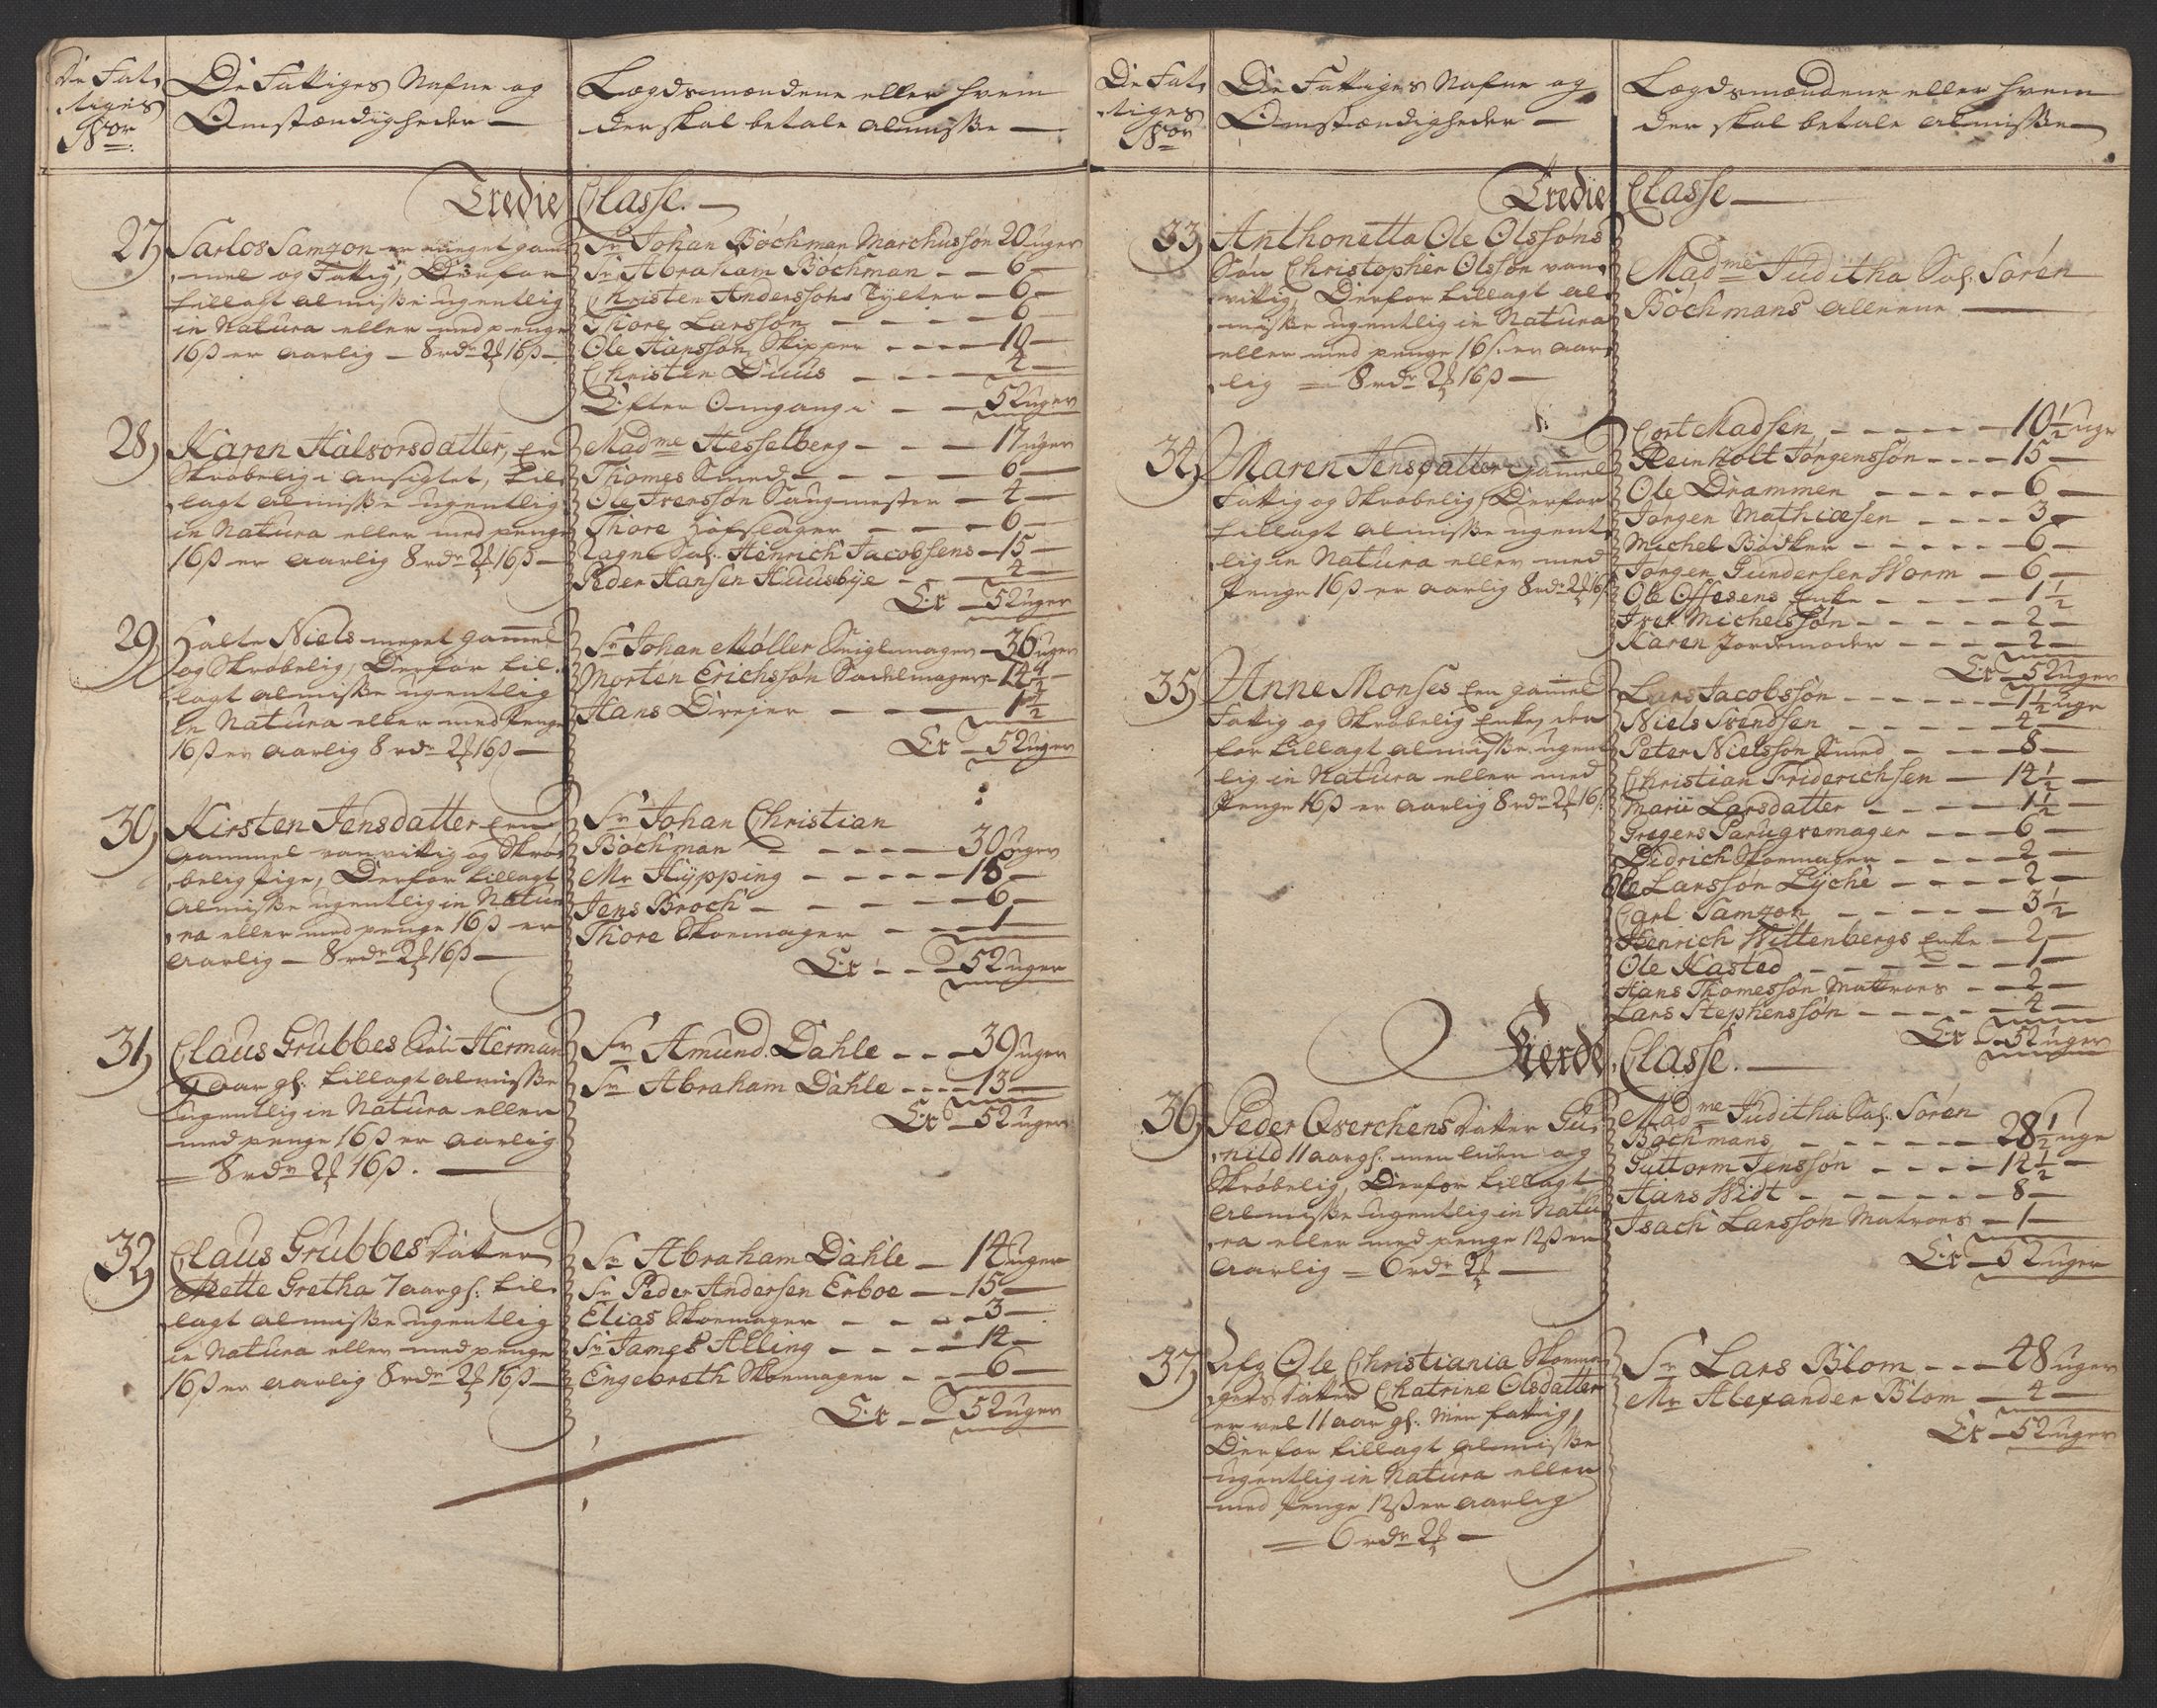 De Fat,
,tiges
Nor
De Fattiges Nafne og
Omstændigheder —
Lægdsmændene eller hvem
der skal betale almisse —
Tredie Classe. —
27,
Sarlos Samzon er meget gam
,mel og Fattig, Derfor
tillagt almisse ugentlig
in Natura eller med penge
16 β er aarlig — 8 rdr 2 ꝑ 16 β —
Sr Johan Bøchman Marchussøn 20 uger
Sr Abraham Bøchman — — 6 —
Christen Anderssøns — 6 —
Thore Larssøn — — — 6 —
Ole Hanssøn Skipper — — — 10 —
Christen Duus — — — 4 —
Efter Omgang — — 52 uger
28,
Karen Halvorsdatter, er
Skrøbelig i ansigtet, til,
,lagt almisse ugentlig
in Natura eller med penge
16 β er aarlig 8 rdr 2 ꝑ 16 β —
Madme Hesselberg — — — 17 uger
Thomes Smed — — — — 6 —
Ole Iverssøn Saugmester — 4 —
Thore Hofslager — — — 6 —
Ragne Sal. Henrich Jacobsens — 15 —
Peder Hansen Huusbye — — 4 —
Er — 52 uger
29,
Halte Niels meget gammel
og Skrøbelig, Derfor til,
,lagt almisse ugentlig
in Natura eller med Penge
16 β er aarlig 8 rdr 2 ꝑ 16 β —
Sr Johan Møller Seiglmager — 36 uger
Morten Erichssøn Sadelmager — 14 ½ —
Hans Drejer — — — 1 ½
Er — 52 uger
30,
Kirsten Jensdatter een
Gammel vanvittig og Skrø,
,belig Pige, Derfor tillagt
Almisse ugentlig in Natu
,ra eller med penge 16 β er
Aarlig — 8 rdr 2 ꝑ 16 β —
Sr Johan Christian
Bøchman — — — — 30 uger
Mr Hypping — — — — — 15 —
Jens Broch — — — — 6 —
Thore Skoemager — — — 1 —
Er — — 52 uger
31,
Claus Grubbes Søn Herman
9 aar gl. tillagt almisse
ugentlig in Natura eller
med penge 16 β er aarlig
= 8 rdr 2 ꝑ 16 β. —
Sr Amund Dahle — — — 39 uger
Sr Abraham Dahle — — — 13 —
Er — 52 uger
32,
Claus Grubbes Datter
Mette Gretha 7 aar gl. til,
,lagt almisse ugentlig
in Natura eller med penge
16 β er aarlig 8 rdr 2 ꝑ 16 β —
Sr Abraham Dahle — 14 uger
Sr Peder Andersen Erboe — — 15 —
Elias Skoemager — — — 3 —
Sr James Alling — — — — 14 —
Engebreth Skoemager — — 6 —
Er — — 52 uger
De Fat,
,tiges
Nor
De Fattiges Nafne og
Omstændigheder —
Lægdsmændene eller hvem
der skal betale almisse —
Tredie Classe —
33,
Anthonetta Ole Olssøns
Søn Christopher Olssøn van,
,vittig, Derfor tillagt al,
,misse ugentlig in Natura
eller med penge 16 β. er aar,
,lig = 8 rdr 2 ꝑ 16 β —
Madme Juditha Sal. Søren
Bøchmans alleene —
34,
Maren Jensdatter gammel
Fattig og Skrøbelig, Derfor
tillagt almisse ugent,
,lig in Natura eller med
Penge 16 β er aarlig 8 rdr 2 ꝑ 16 β
Cort Madsen — — — — — 10 ½ uge
Reinholt Jørgenssøn — — — 15 —
Ole Drammen — — — — — 6 —
Jørgen Mathiæsen — — — — 3 —
Michel Bødker — — — — — 6 —
Jørgen Gundersen Worm — 6 —
Ole Offesens Enke — — — — 1 ½
Iver Michelssøn — — — — — 2 —
Karen Jordemoder — — — — 2 —
Er — 52 uger
35,
Anne Monses een gammel
Fattig og Skrøbelig Enke, der
for tillagt almisse ugent
lig in Natura eller med
Penge 16 β er aarlig 8 rdr 2 ꝑ 16 β.
Lars Jacobssøn — — — — — 1 ½ uge
Niels Svendsen — — — — 4 —
Peter Nielssøn Smed — — — 8 —
Christian Friderichsen — 14 ½ —
Marie Larsdatter — — — — 1 ½ —
Gregers Paruqvemager — — — 6 —
Didrich Skoemager — — — — 2 —
Ole Larssøn Lyche — — — — 2 —
Carl Samzon — — — — — 3 ½
Henrich Wittenbergs Enke — 2 —
Ole Kasted — — — — — — 1 —
Hans Thomessøn Matroes — — 2 —
Lars Stephenssøn — — — — — 4 —
Er — 52 uger
Fierde Classe. —
36,
Peder Qverchens Datter Gu,
,nild 11 aar gl. men liden og
Skrøbelig, Derfor tillagt
almisse ugentlig in Natu
,ra eller med penge 12 β er
Aarlig = 6 rdr 2 ꝑ —
Madme Juditha Sal. Søren
Bøchmans — — — — — — 28 ½ uge
Guttorm Jenssøn — — — — 14 ½ —
Hans Widt — — — — — — 8 —
Isach Larssøn Matroes — 1 —
Er — 52 uger
37,
Afg Ole Christiania Skoema
,gers Datter Chatrine Olsdatter
er vel 11 aar gl. Men fattig,
Derfor tillagt almisse
ugentlig in Natura eller
med Penge 12 β er aarlig
= 6 rdr 2 ꝑ —
Sr Lars Blom — — — 48 uger
Mr Alexander Blom — 4 —
Er — 52 uger